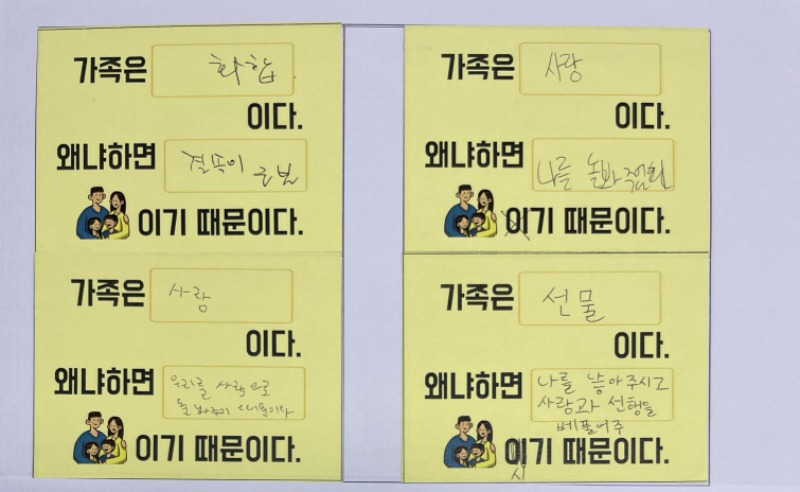 가족은 화합
이다.
왜냐하면 결속이 근본
이기 때문이다.
가족은 사랑
이다.
왜냐하면 나를 돌봐주었
이기 때문이다.
가족은 사랑
이다.
왜냐하면 우리를 사랑으로
돌봐주기 때문이다
이기 때문이다.
가족은 선물
이다.
왜냐하면 나를 낳아주시고
사랑과 선행을
베풀어주
시
이기 때문이다.